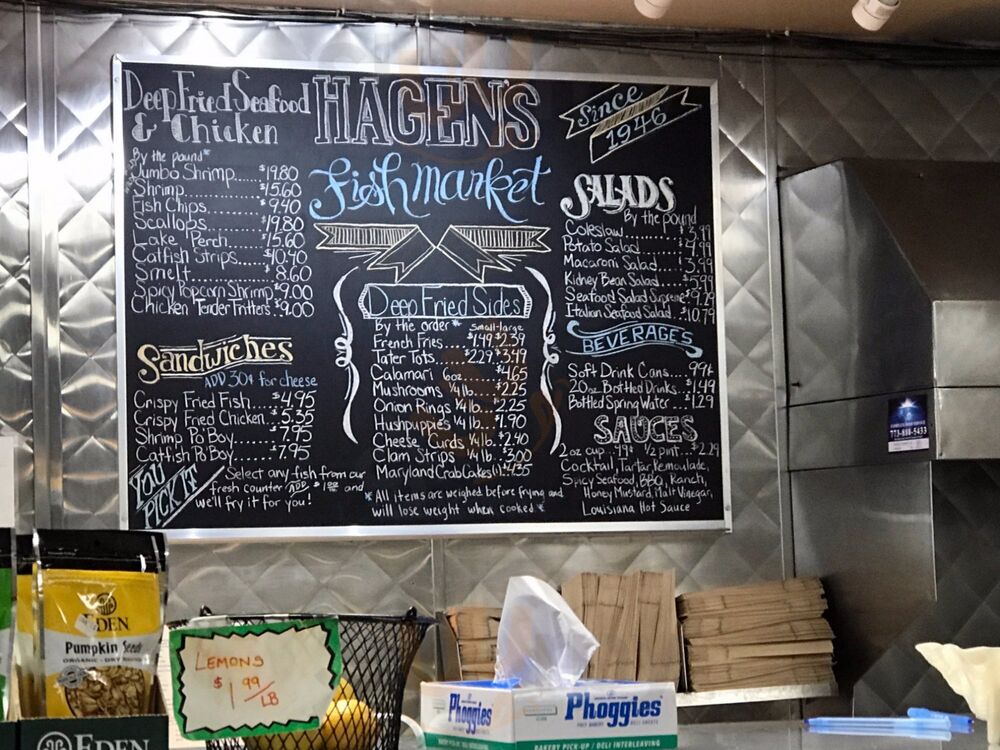 Deep Fried Seafood
& Chicken
By the pound*
Jumbo Shrimp.....$19.80
Shrimp.........$15.60
Fish Chips........$9.40
Scallops........$19.80
Lake Perch....$15.60
Catfish Strips...$10.90
Smelt.........$8.60
Spicy Popcorn Shrimp $9.00
Chicken Tender Fritters.$9.00
Sandwiches
ADD 30¢ for cheese
Crispy Fried Fish....$4.95
Crispy Fried Chicken..$5.35
Shrimp Po Boy......$7.95
Catfish Po Boy.....$7.95
YOU
PICK IT
Select any fish from our
fresh counter ADD $1.00 and
we'll fry it for you!
HAGEN'S
Fish Market
Deep Fried Sides
By the order* Small-large
French Fries....$1.49 $2.39
Tater Tots.....$2.29 $3.49
Calamari 6oz.....$4.65
Mushrooms ¼lb...$2.25
Onion Rings ¼lb...$2.25
Hushpuppies ¼lb...$1.90
Cheese Curds ¼lb..$2.40
Clam Strips ¼lb...$3.00
Maryland Crab Cakes(1).$4.35
*All items are weighed before frying and
will lose weight when cooked*
Since
1946
SALADS
By the pound
Coleslaw..........$3.99
Potato Salad.......$4.99
Macaroni Salad....$3.99
Kidney Bean Salad....$5.99
Seafood Salad Supreme $9.29
Italian Seafood Salad..$10.79
BEVERAGES
Soft Drink Cans....99¢
20oz Bottled Drinks..$1.49
Bottled Spring Water...$1.29
SAUCES
2 oz cup..99¢ ½ pint..$2.29
Cocktail, Tartar, Remoulade,
Spicy Seafood, BBQ, Ranch,
Honey Mustard, Malt Vinegar,
Louisiana Hot Sauce
773-858-5433
EDEN
Pumpkin Seeds
ORGANIC - DRY
EDEN
LEMONS
$1.99/LB
Phoggies
Phoggies
BAKERY PICK-UP / DELI INTERLEAVING